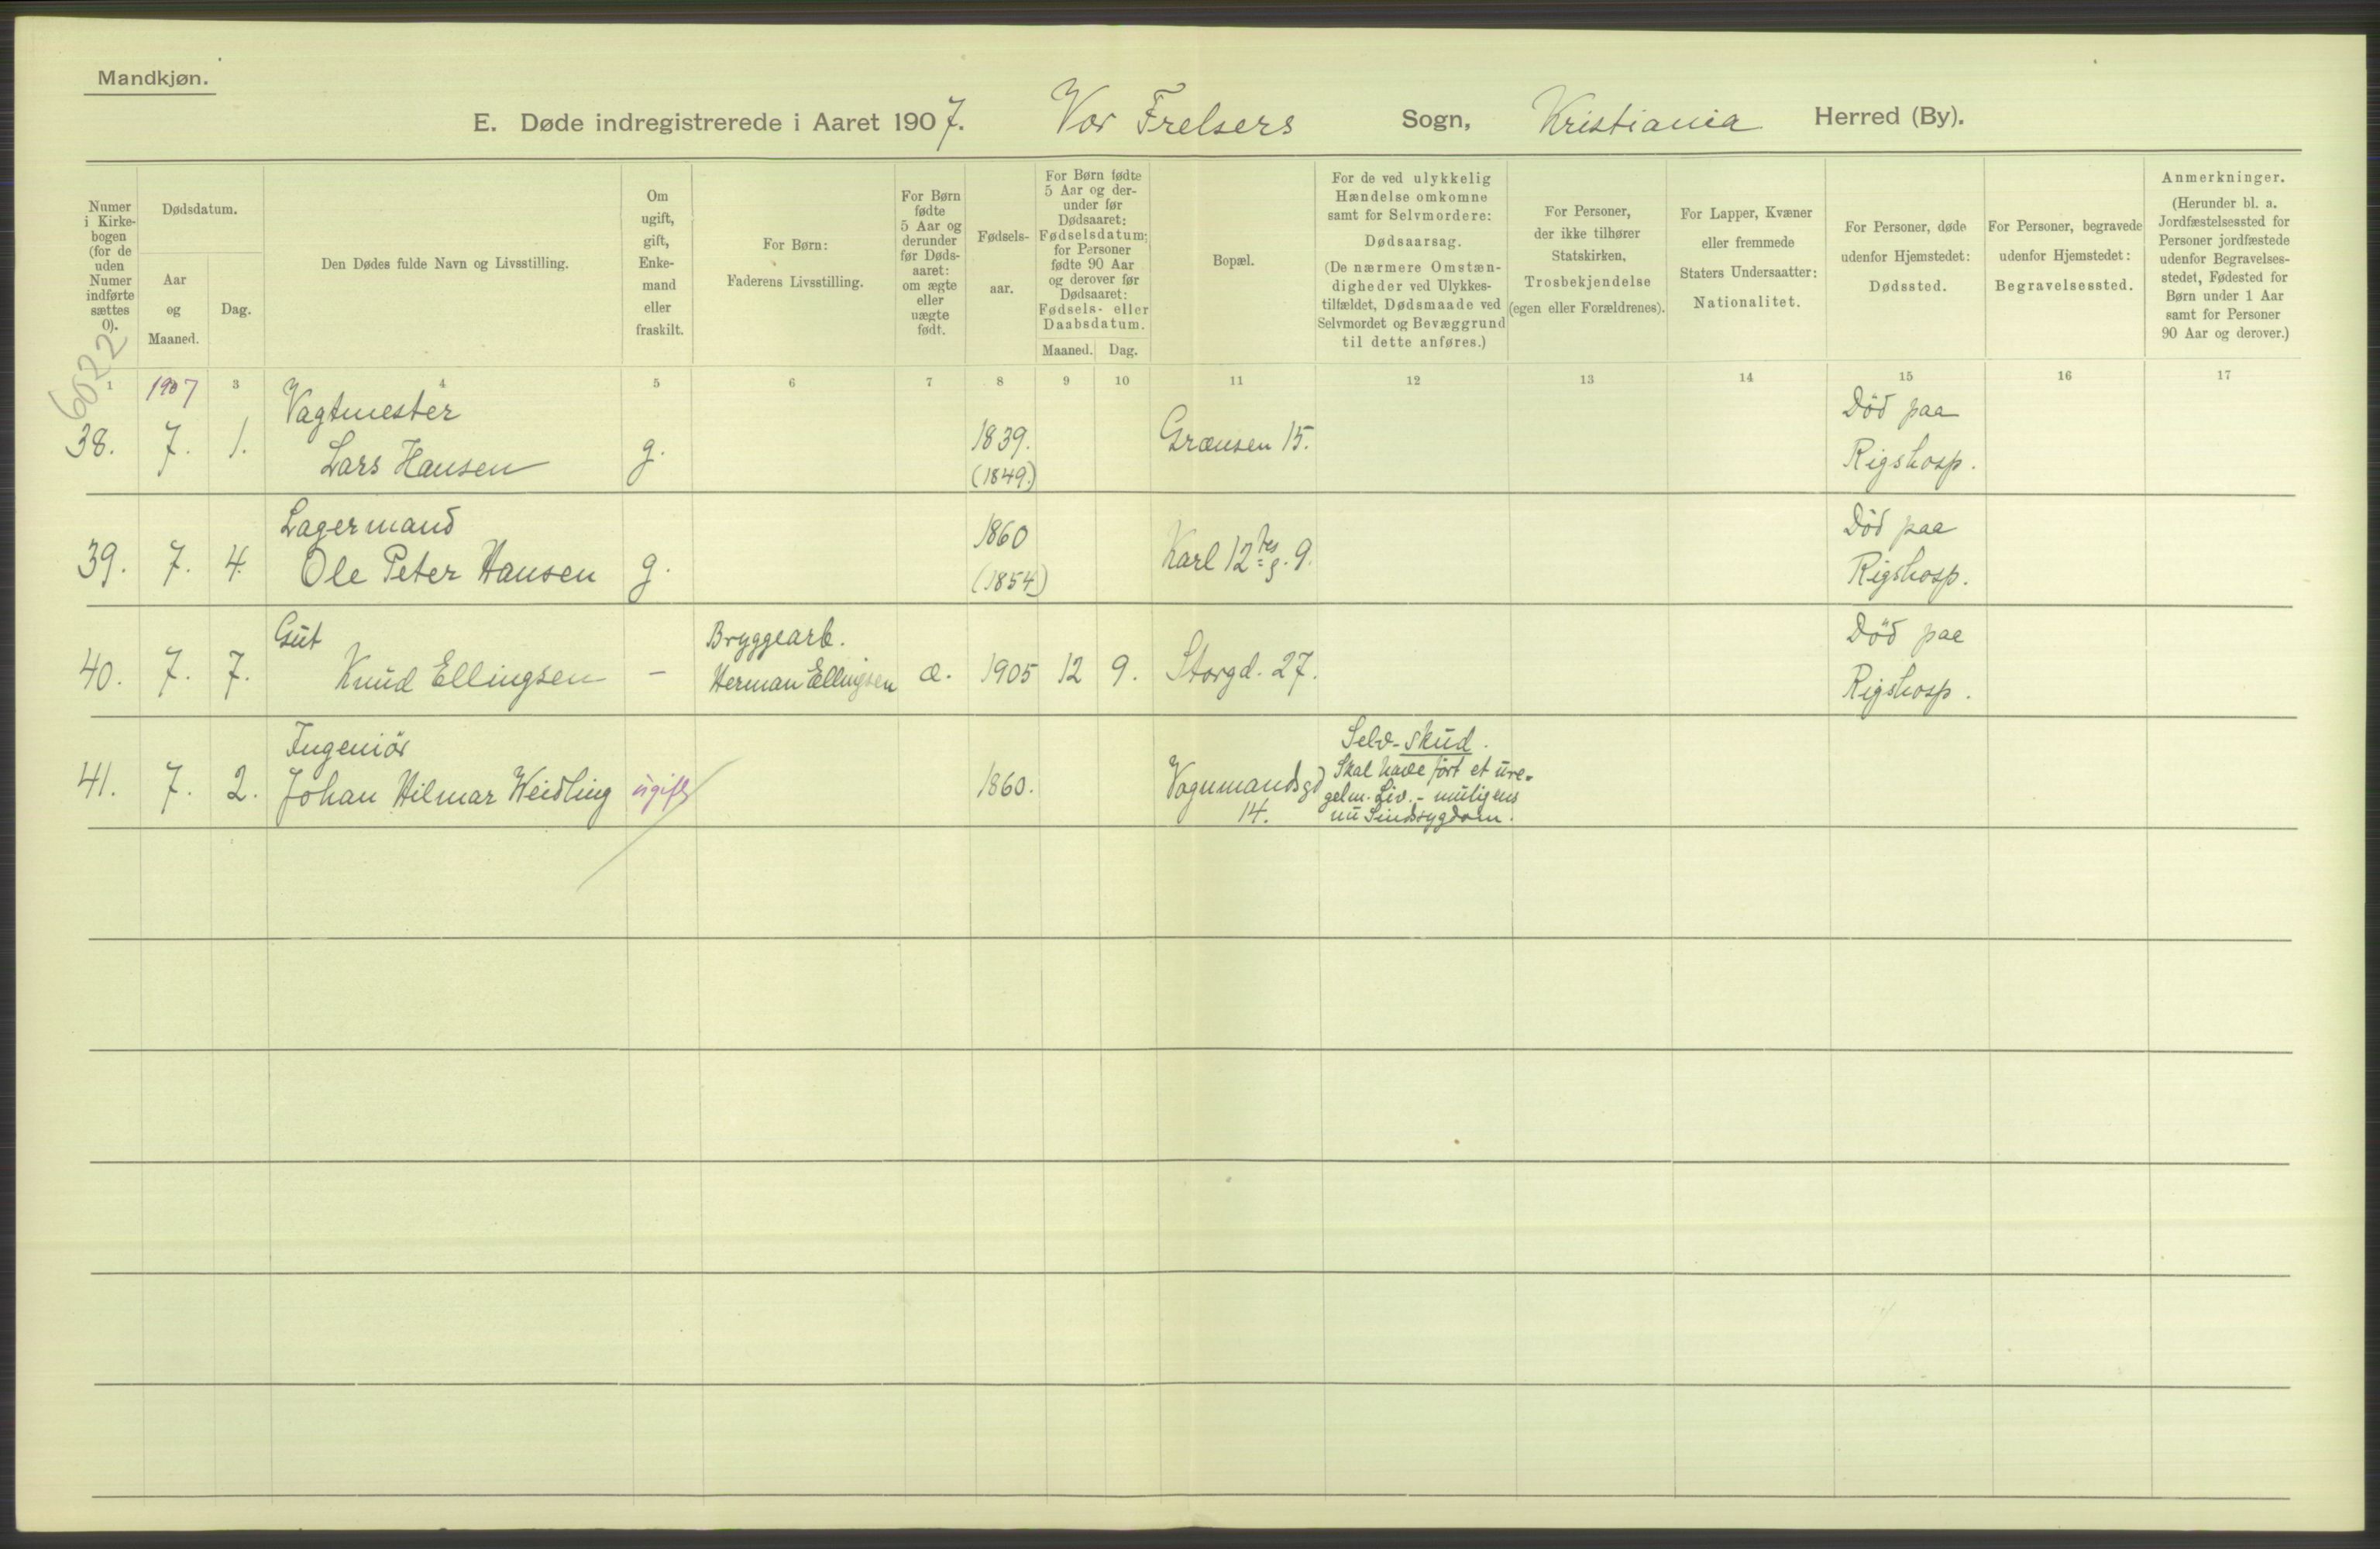 Mandkjøn.
E. Døde indregistrerede i Aaret 1907. Vor Frelsers Sogn, Kristiania Herred (By).
Numer
i Kirke-
bogen
(for de
uden
Numer
indførte
sættes
0).
Dødsdatum.
Aar
og
Maaned.
Dag.
Den Dødes fulde Navn og Livsstilling.
Om
ugift,
gift,
Enke-
mand
eller
fraskilt.
For Børn:
Faderens Livsstilling.
For Børn
fødte
5 Aar og
derunder
før Døds-
aaret:
om ægte
eller
uægte
født.
Fødsels-
aar.
For Børn fødte
5 Aar og der-
under før
Dødsaaret:
Fødselsdatum;
for Personer
fødte 90 Aar
og derover før
Dødsaaret:
Fødsels- eller
Daabsdatum.
Maaned. Dag.
Bopæl.
For de ved ulykkelig
Hændelse omkomne
samt for Selvmordere:
Dødsaarsag.
(De nærmere Omstæn-
digheder ved Ulykkes-
tilfældet, Dødsmaade ved
Selvmordet og Bevæggrund
til dette anføres.)
For Personer,
der ikke tilhører
Statskirken,
Trosbekjendelse
(egen eller Forældrenes).
For Lapper, Kvæner
eller fremmede
Staters Undersaatter:
Nationalitet.
For Personer, døde
udenfor Hjemstedet:
Dødssted.
For Personer, begravede
udenfor Hjemstedet:
Begravelsessted.
Anmerkninger.
(Herunder bl. a.
Jordfæstelsessted for
Personer jordfæstede
udenfor Begravelses-
stedet, Fødested for
Børn under 1 Aar
samt for Personer
90 Aar og derover.)
6022
1 1907 3 4 5 6 7 8 9 10 11 12 13 14 15 16 17
Vagtmester Død paa
38. 7. 1. Lars Hansen g. 1839. Grænsen 15. Rigshosp.
(1849.)
Lagermand 1860 Død paa
39. 7. 4. Ole Peter Hansen g. (1854) Karl 12tes g. 9. Rigshosp.
Gut Bryggearb. Død paa
40. 7. 7. Knud Ellingsen – Herman Ellingsen æ. 1905 12 9. Storgd. 27. Rigshosp.
Ingeniör Selv-skud.
41. 7. 2. Johan Hilmar Weidling ugift 1860. Vognmandsgd Skal have ført et ure-
14. gelm. Liv. - muligens
nu Sindssygdom.